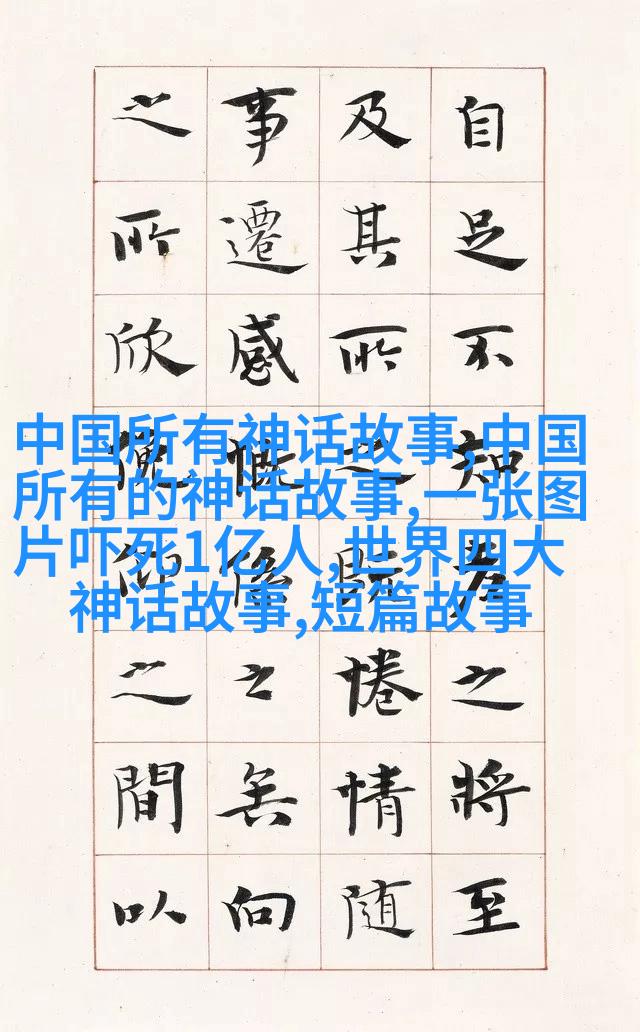 自足不知老之將至
及其所之既惓情隨
事遷感慨係之矣向
之所欣俛仰之間以
中国所有神话故事,中国
所有的神话故事,一张图
片吓死1亿人,世界四大
神话故事,短篇故事